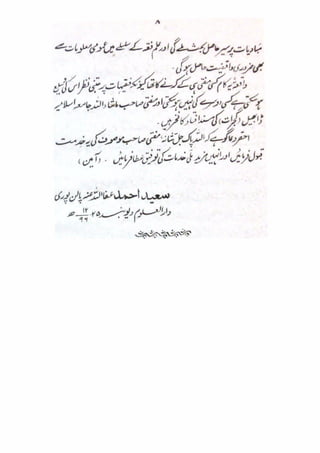 ۸
مبادیات پر سیر حاصل بحث ملے گی اور علم فقہ کے سلسلے میں عمومی معلومات سے
بھی ضروری واقفیت حاصل ہوگی۔
واقعۃً یہ کام کسی مفتی ہی کے کرنے کا تھا کیونکہ فقہیات پر جتنی نظر اس کی
ہو سکتی ہے کسی دوسرے کی نہیں ہو سکتی اور مفتی صاحب ماشاء اللہ جامعہ اسلامیہ
ڈابھیل (گجرات) کی سند افتاء کا فخر ہیں۔
احقر دعا گو ہے کہ اللہ پاک جل شانہ مفتی صاحب موصوف کی یہ خدمت
قبول فرمائیں اور انہیں مزید ملی خدمات کی توفیق عطا فرمائیں۔ (آمین)
سعید احمد عفا اللہ عنہ پالن پوری
دار العلوم دیوبند ۲۵